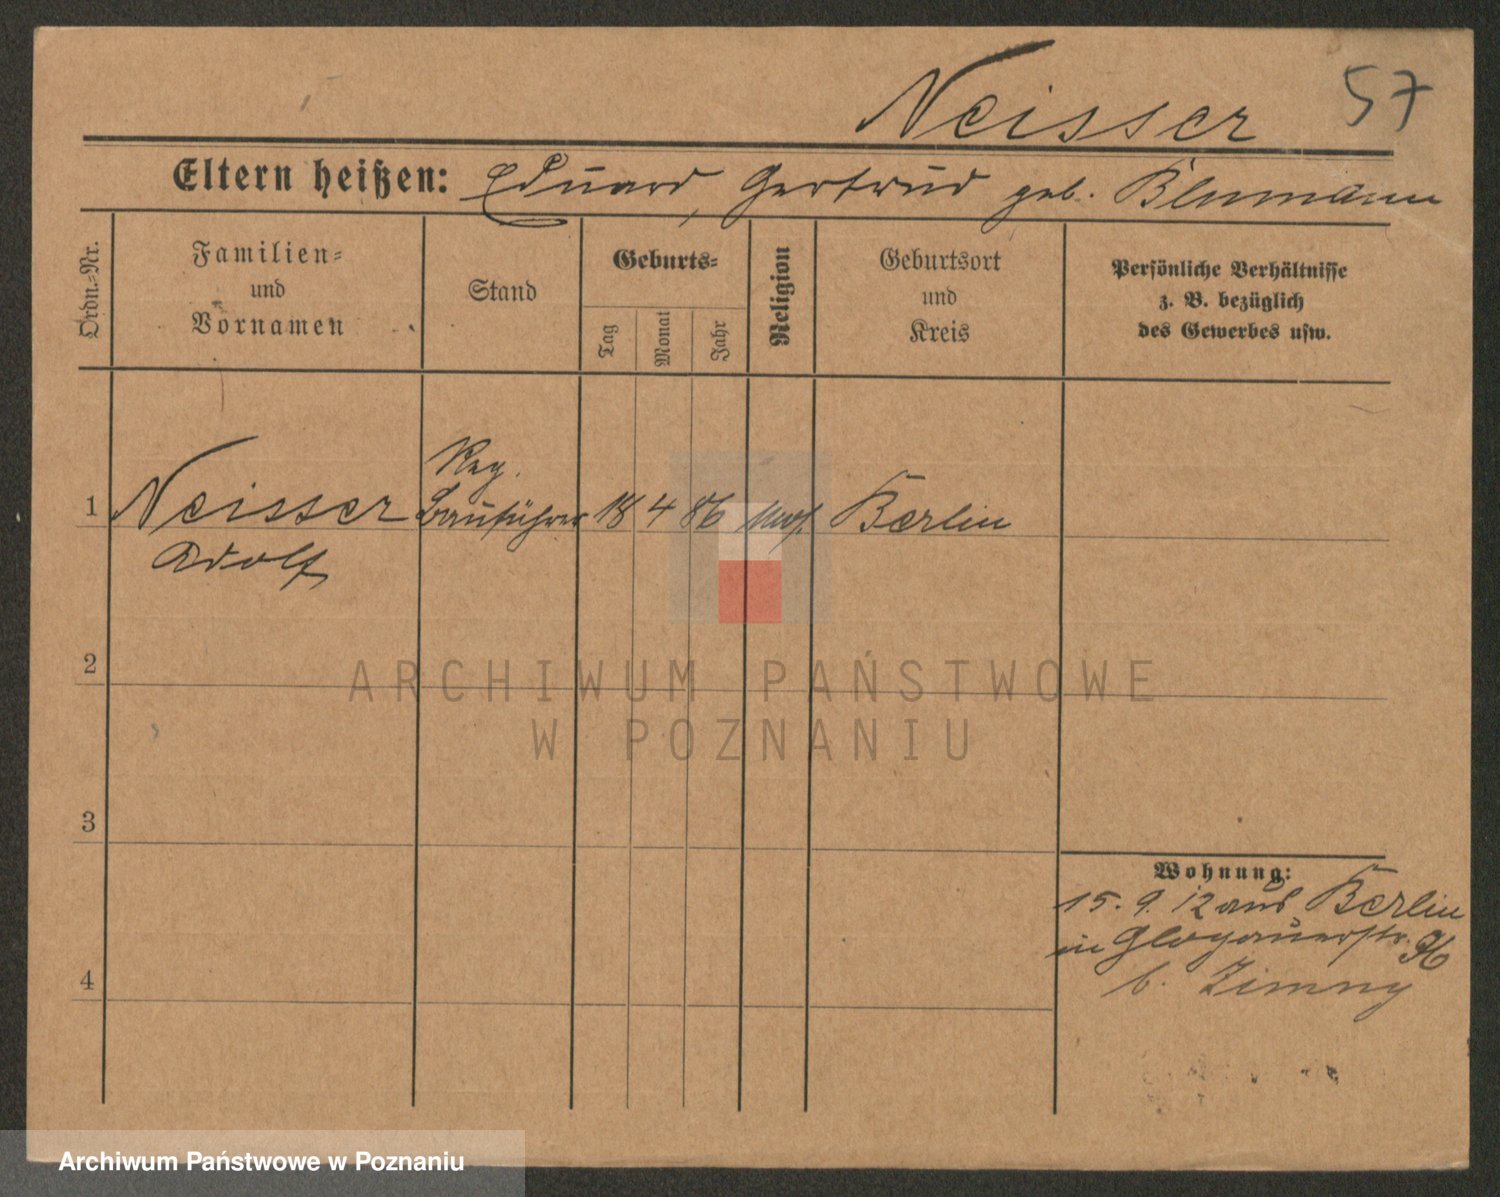 Neisser 57
Eltern heißen: Eduard, Gertrud geb. Blumann
Ordn.-Nr.
Familien=
und
Vornamen
Stand
Geburts=
Tag
Monat
Jahr
Religion
Geburtsort
und
Kreis
Persönliche Verhältnisse
z. B. bezüglich
des Gewerbes usw.
Reg.
1 Neisser Bauführer 18 4 86 Berlin
Adolf
2
3
4
Wohnung:
15. 9. 12 aus Berlin
in Glogauerstr.
b. Zimny
ARCHIWUM PAŃSTWOWE
W POZNANIU
Archiwum Państwowe w Poznaniu